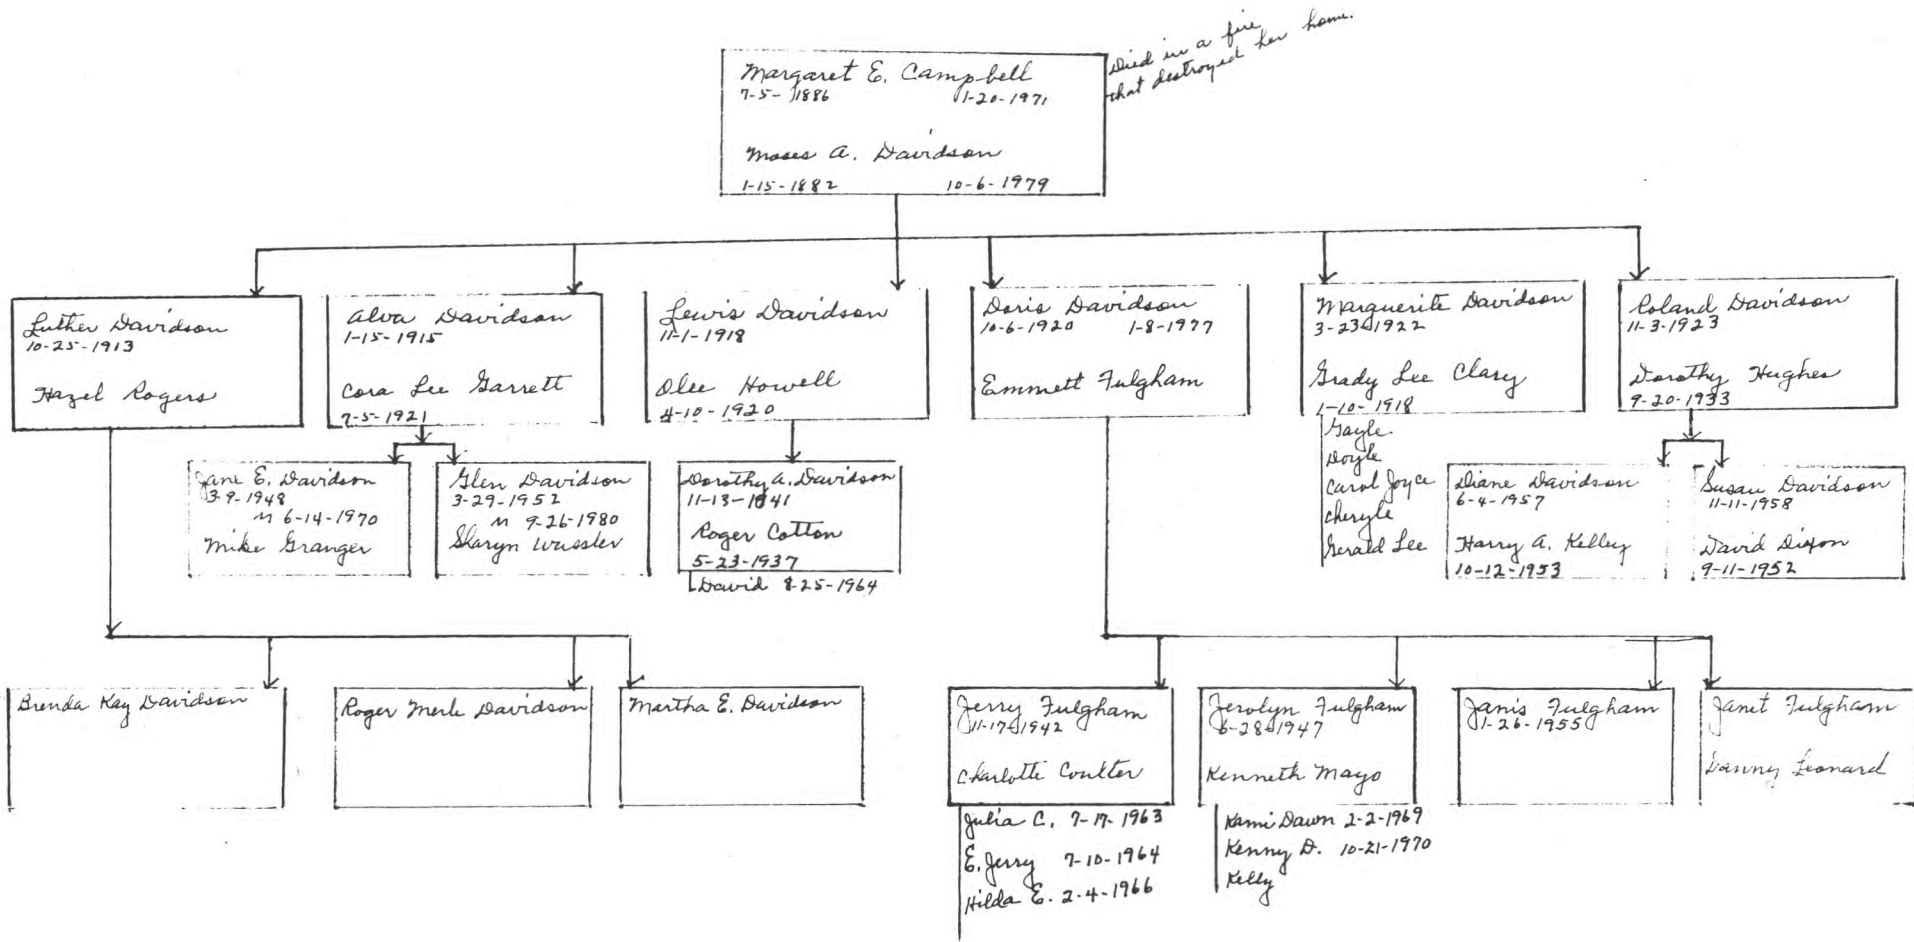 Died in a fire
that destroyed her home.
Margaret E. Campbell
7-5-1886 1-20-1971
Moses A. Davidson
1-15-1882 10-6-1979
Luther Davidson
10-25-1913
Hazel Rogers
Alva Davidson
1-15-1915
Cora Lee Garrett
7-5-1921
Lewis Davidson
11-1-1918
Olee Howell
4-10-1920
Doris Davidson
10-6-1920 1-8-1977
Emmett Fulgham
Marguerite Davidson
3-23-1922
Grady Lee Clary
1-10-1918
Gayle
Doyle
Carol Joyce
Cheryle
Gerald Lee
Roland Davidson
11-3-1923
Dorothy Hughes
9-20-1933
Jane E. Davidson
3-9-1948
M 6-14-1970
Mike Granger
Glen Davidson
3-29-1952
M 9-26-1980
Sharyn Wussler
Dorothy A. Davidson
11-13-1941
Roger Cotton
5-23-1937
David 8-25-1964
Diane Davidson
6-4-1957
Harry A. Kelley
10-12-1953
Susan Davidson
11-11-1958
David Dixon
9-11-1952
Brenda Kay Davidson
Roger Merle Davidson
Martha E. Davidson
Jerry Fulgham
11-17-1942
Charlotte Coulter
Julia C. 7-17-1963
E. Jerry 7-10-1964
Hilda E. 2-4-1966
Jerolyn Fulgham
6-28-1947
Kenneth Mayo
Kami Dawn 2-2-1969
Kenny D. 10-21-1970
Kelly
Janis Fulgham
1-26-1955
Janet Fulgham
Danny Leonard